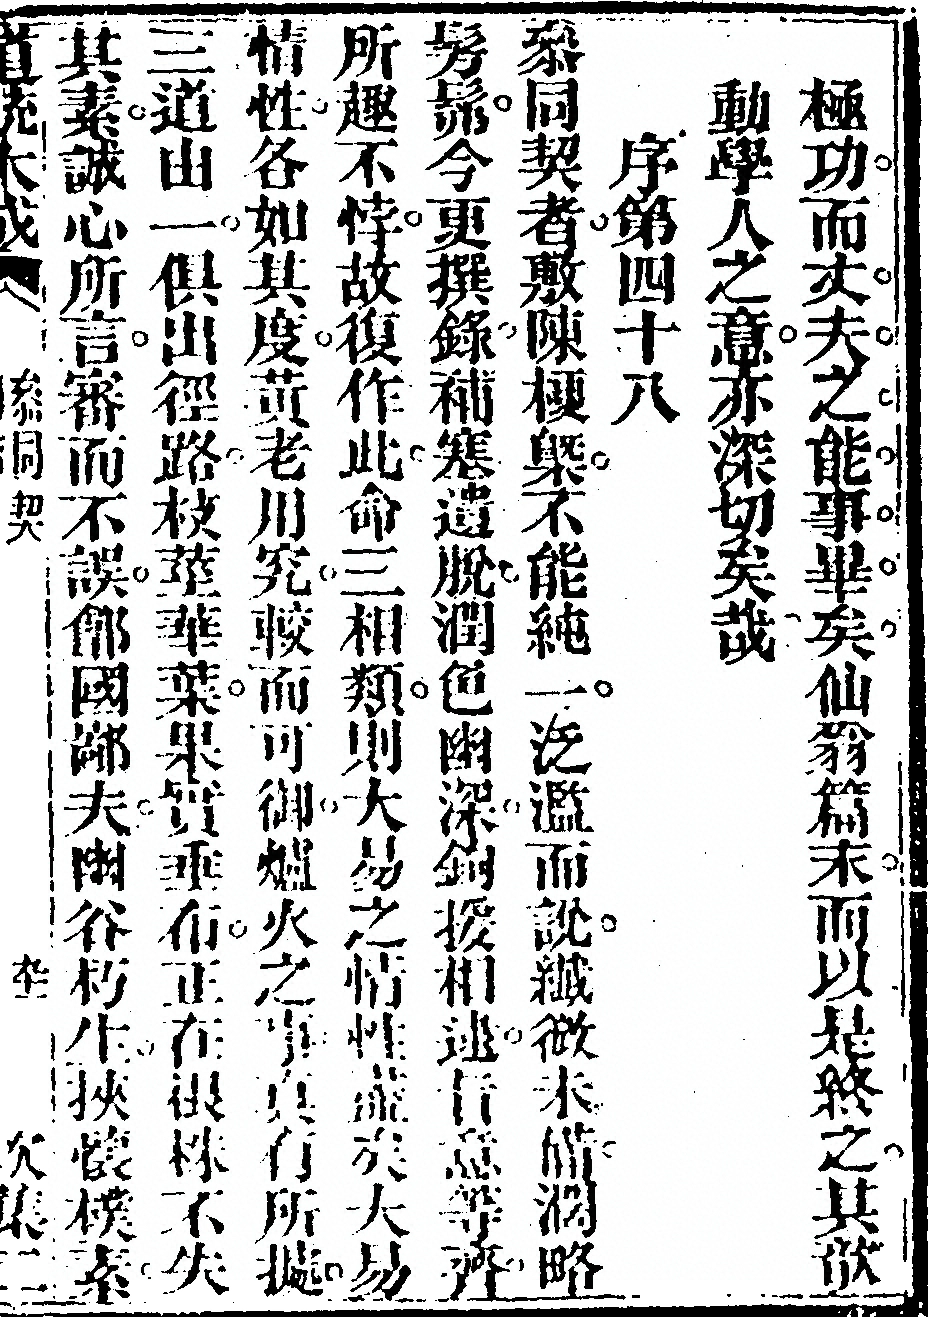 極功而丈夫之能事畢矣仙翁篇末而以是終之其欲
動學人之意亦深切矣哉
序第四十八
叅同契者敷陳梗槩不能純一泛濫而說纖微未備濶略
髣髴今更撰錄補塞遺脫潤色幽深鉤援相逮旨意等齊
所趣不悖故復作此命三相類則大易之情性盡矣大易
情性各如其度黃老用究較而可御爐火之事真有所據
三道由一俱出徑路枝莖華葉果實垂布正在根株不失
其素誠心所言審而不誤鄶國鄙夫幽谷朽生挾懷樸素
道統大成
叅同契
次集二